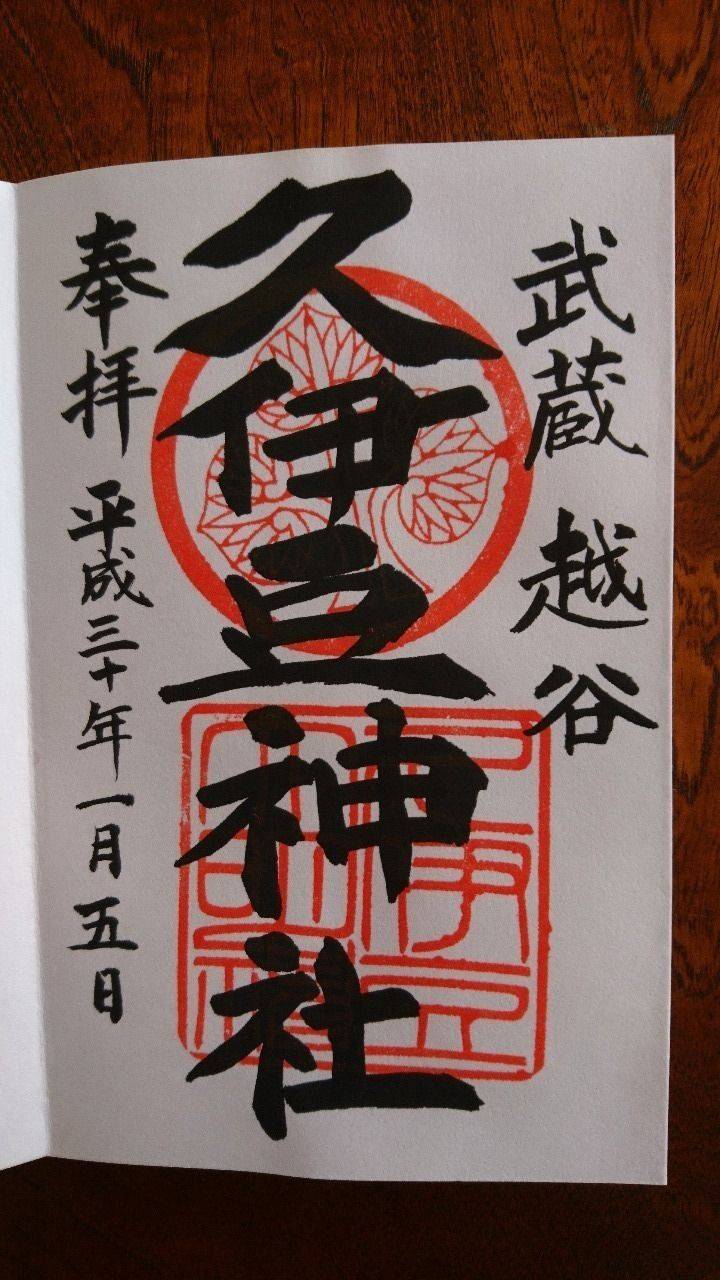 武蔵 越谷
久伊豆神社
奉拝 平成三十年一月五日